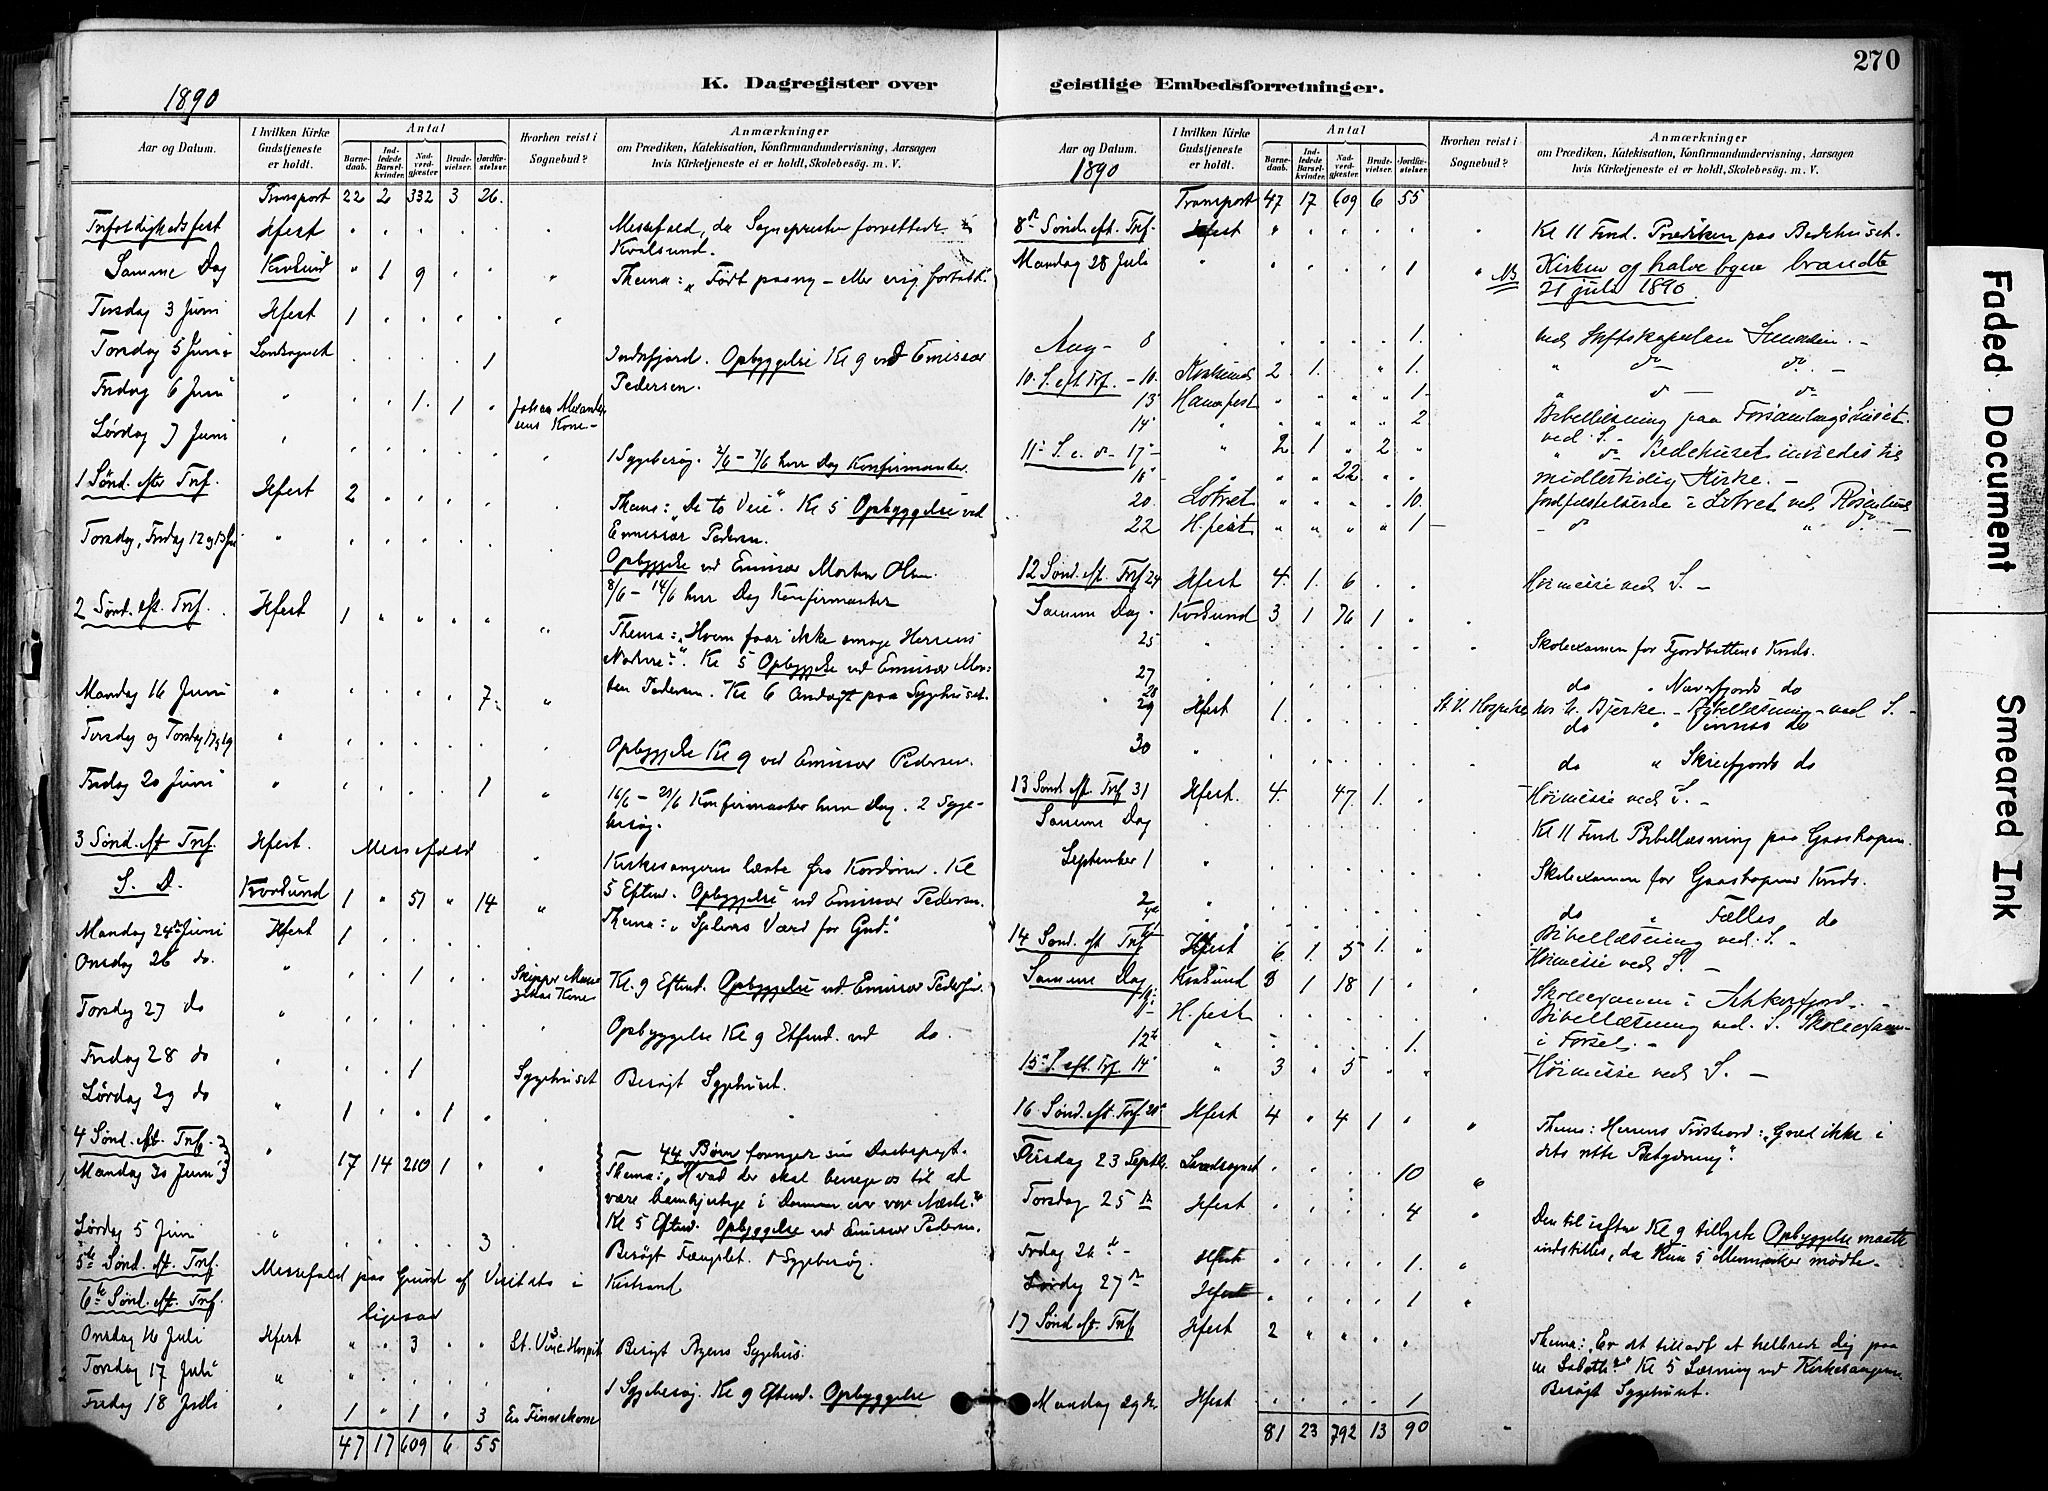 270
K. Dagregister over geistlige Embedsforretninger.
1890
Aar og Datum.
I hvilken Kirke Gudstjeneste er holdt.
Antal
Barnedaab.
Indledede Barselkvinder.
Nadverdgjæster.
Brudevielser.
Jordfæstelser.
Hvorhen reist i Sognebud?
Anmærkninger
om Prædiken, Katekisation, Konfirmandundervisning, Aarsagen
hvis Kirketjeneste ei er holdt, Skolebesøg. m. V.
Transport 22 2 332 3 26.
Trefoldighedsfest Hfest Messefald, da Sognepresten forrettede i
Kvalsund.
Samme Dag Kvalsund " 1 9 Thema: „Født paany – eller evig fortabt."
Tirsdag 3 Juni Hfest 1
Torsdag 5 Juni Landsognet 1 Indrefjord. Opbyggelse Kl 9 ved Emissær
Pedersen.
Fredag 6 Juni 1. 1
Lørdag 7 Juni 1 Sygebesøg. 2/6 – 7/6 hver Dag Konfirmander.
1 Sønd. efter Trf. Hfest 2 Thema: „De to Veie". Kl 5 Opbyggelse ved
Emissær Pedersen.
Torsdag, Fredag 12 og 13 Juni
Opbyggelse ved Emissær Morten Olsen.
8/6 – 14/6 hver Dag Konfirmanter
2 Sønd. eft. Trf. Hfest 1 Thema: „Hvem faar ikke smage Herrens
Nadvere?". Kl 5 Opbyggelse ved Emissær Mor-
ten Pedersen. Kl 6 Andagt paa Sygehuset.
Mandag 16 Juni 7
Tirsdag og Torsdag 17 og 19 Opbyggelse Kl 9 ved Emissær Pedersen.
Fredag 20 Juni 1 16/6 – 21/6 Konfirmanter hver Dag. 2 Syge-
besøg.
3 Sønd. eft Trf. Hfest. Messefald Kirkesangeren læste fra Kordøren. Kl
5 Efterm. Opbyggelse ved Emissær Pedersen.
S. D. Kvalsund 1 " 51 " 14 Thema: „Sjelens Værd for Gud".
Mandag 24de Juni Hfest 1
Onsdag 26 do. 1 Kl. 9 Efterm. Opbyggelse ved Emissær Pedersen.
Torsdag 27 do Opbyggelse Kl 9 Efterm. ved do.
Fredag 28 do 1 Sygehuset Besøgt Sygehuset.
Lørdag 29 do 1 1
4 Sønd. eft. Trf. 44 Børn fornyer sin Daabspagt.
Mandag 30 Juni 17 14 210 1 Thema: „Hvad der skal bevæge os til at
være barmhjertige i Dommen over vor Næste?"
Kl 5 Efterm. Opbyggelse ved Emissær Pedersen.
Lørdag 5 Juni 3 Besøgt Fængslet. 1 Sygebesøg.
5te Sønd. eft. Trf. Messefald paa Grund af Visitats i Kistrand
6te Sønd. eft. Trf. ligesaa
Onsdag 16 Juli Hfest 3 St. Vinc. Hospit. Besøgt Byens Sygehus.
Torsdag 17 Juli
Fredag 18 Juli 1 " 1 " 3 En Finnekone 1 Sygebesøg. Kl 9 Efterm. Opbyggelse
47 17 609 6 55
Aar og Datum.
1890
I hvilken Kirke Gudstjeneste er holdt.
Antal
Barnedaab.
Indledede Barselkvinder.
Nadverdgjæster.
Brudevielser.
Jordfæstelser.
Hvorhen reist i Sognebud?
Anmærkninger
om Prædiken, Katekisation, Konfirmandundervisning, Aarsagen
hvis Kirketjeneste ei er holdt, Skolebesøg. m. V.
Transport 47 17 609 6 55
8de Sønd. eft. Trf. Hfest Kl 11 Form. Prædiken paa Bedehuset.
Mandag 28 Juli 1 NB Kirken og halve byen brændte
21 juli 1890.
Aug – 8 1. ved Stiftskapelan
10. S. eft. Trf. – 10. Kvalsund 2 1. " 1. " do do. –
13 Hamrfest 1 " do – do
14 2 Bibellæsning paa Forsamlingshuset
ved S.
11te S. e. do – 17 – 2 1 " 2 " do Bedehuset inviedes til
22 midlertidig Kirke. –
20. Lotret 10. Jordfæstelserne i Lotret ved
22 H.fest 1 – do do –
12 Sønd. eft. Trf. 24 Hfest 4 1. 6 Høimesse ved S. –
Samme Dag. Kvalsund 3 1 76 1
25 Skoleexamen for Fjordbottens Kreds.
27 do " Næverfjords do
28
29 Hfest 1. St. V. Hospital hos Bjerke. – Bibellæsning – ved S. –
do do
30 do " Skreifjords do
13 Sønd. eft Trf 31 Hfest. 4. 47. 1. Høimesse ved S. –
Samme Dag Kl 11 Form Bibellæsning paa Gaashopen.
September 1 Skoleexamen for Gaashopens Kreds.
2 do " Fælles do
Bibellæsning ved. S. –
14 Sønd. eft Trf Hfest 6 1 5 1. Høimesse ved S. –
Samme Dag Kvalsund 3 1 18 1
H.fest Skoleexamen i Akkarfjord.
Bibellæsning ved. S. Skoleexamen
12te 1. i Forsøl. –
15de S. eft. Trf. 14 3 " 5 Høimesse ved S. –
16 Sønd. eft. Trf. Hfest 4 " 4 1 Thema: Herrens Trøsteord: „Græd ikke i
dets rette Betydning".
Tirsdag 23 Septb. Landsognet 10
Torsdag 25 de Hfest 4 Den til aften Kl 9 tillyste Opbyggelse maatte
indstilles, da kun 5 Mennesker mødte.
Fredag 26 de – Hfest 1.
Lørdag 27 de Hfest 1
17 Sønd eft. Trf. Hfest 2 Thema: „Er det tilladt at helbrede dig paa
en Sabath?" Kl 5 Læsning ved Kirkesangeren
Besøgt Sygehuset.
Mandag 29 de Hfest 1
81 23 792 13 90
Faded Document
Smeared Ink